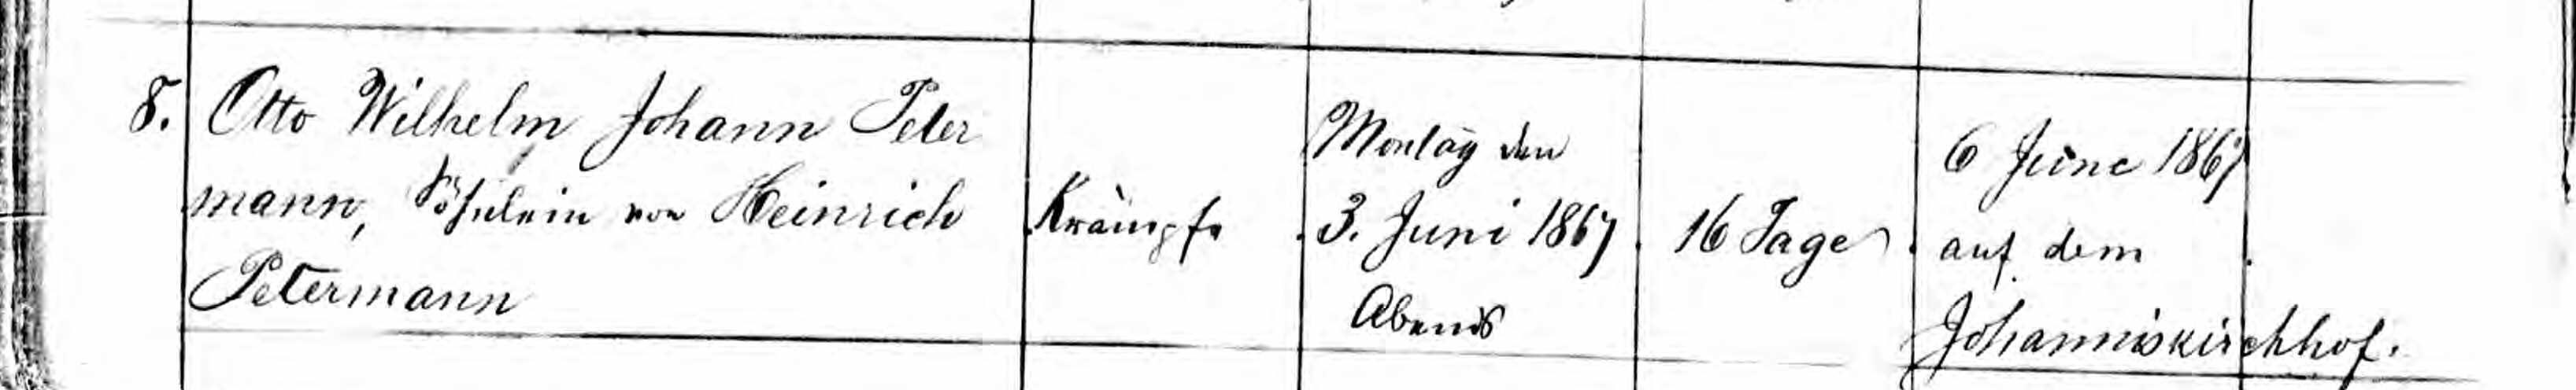 8. Otto Wilhelm Johann Peter
mann, Söhnlein von Heinrich
Petermann
Krämpfe
Montag den
3. Juni 1867
Abends
16 Tage
6 June 1867
auf dem
Johanniskirchhof.